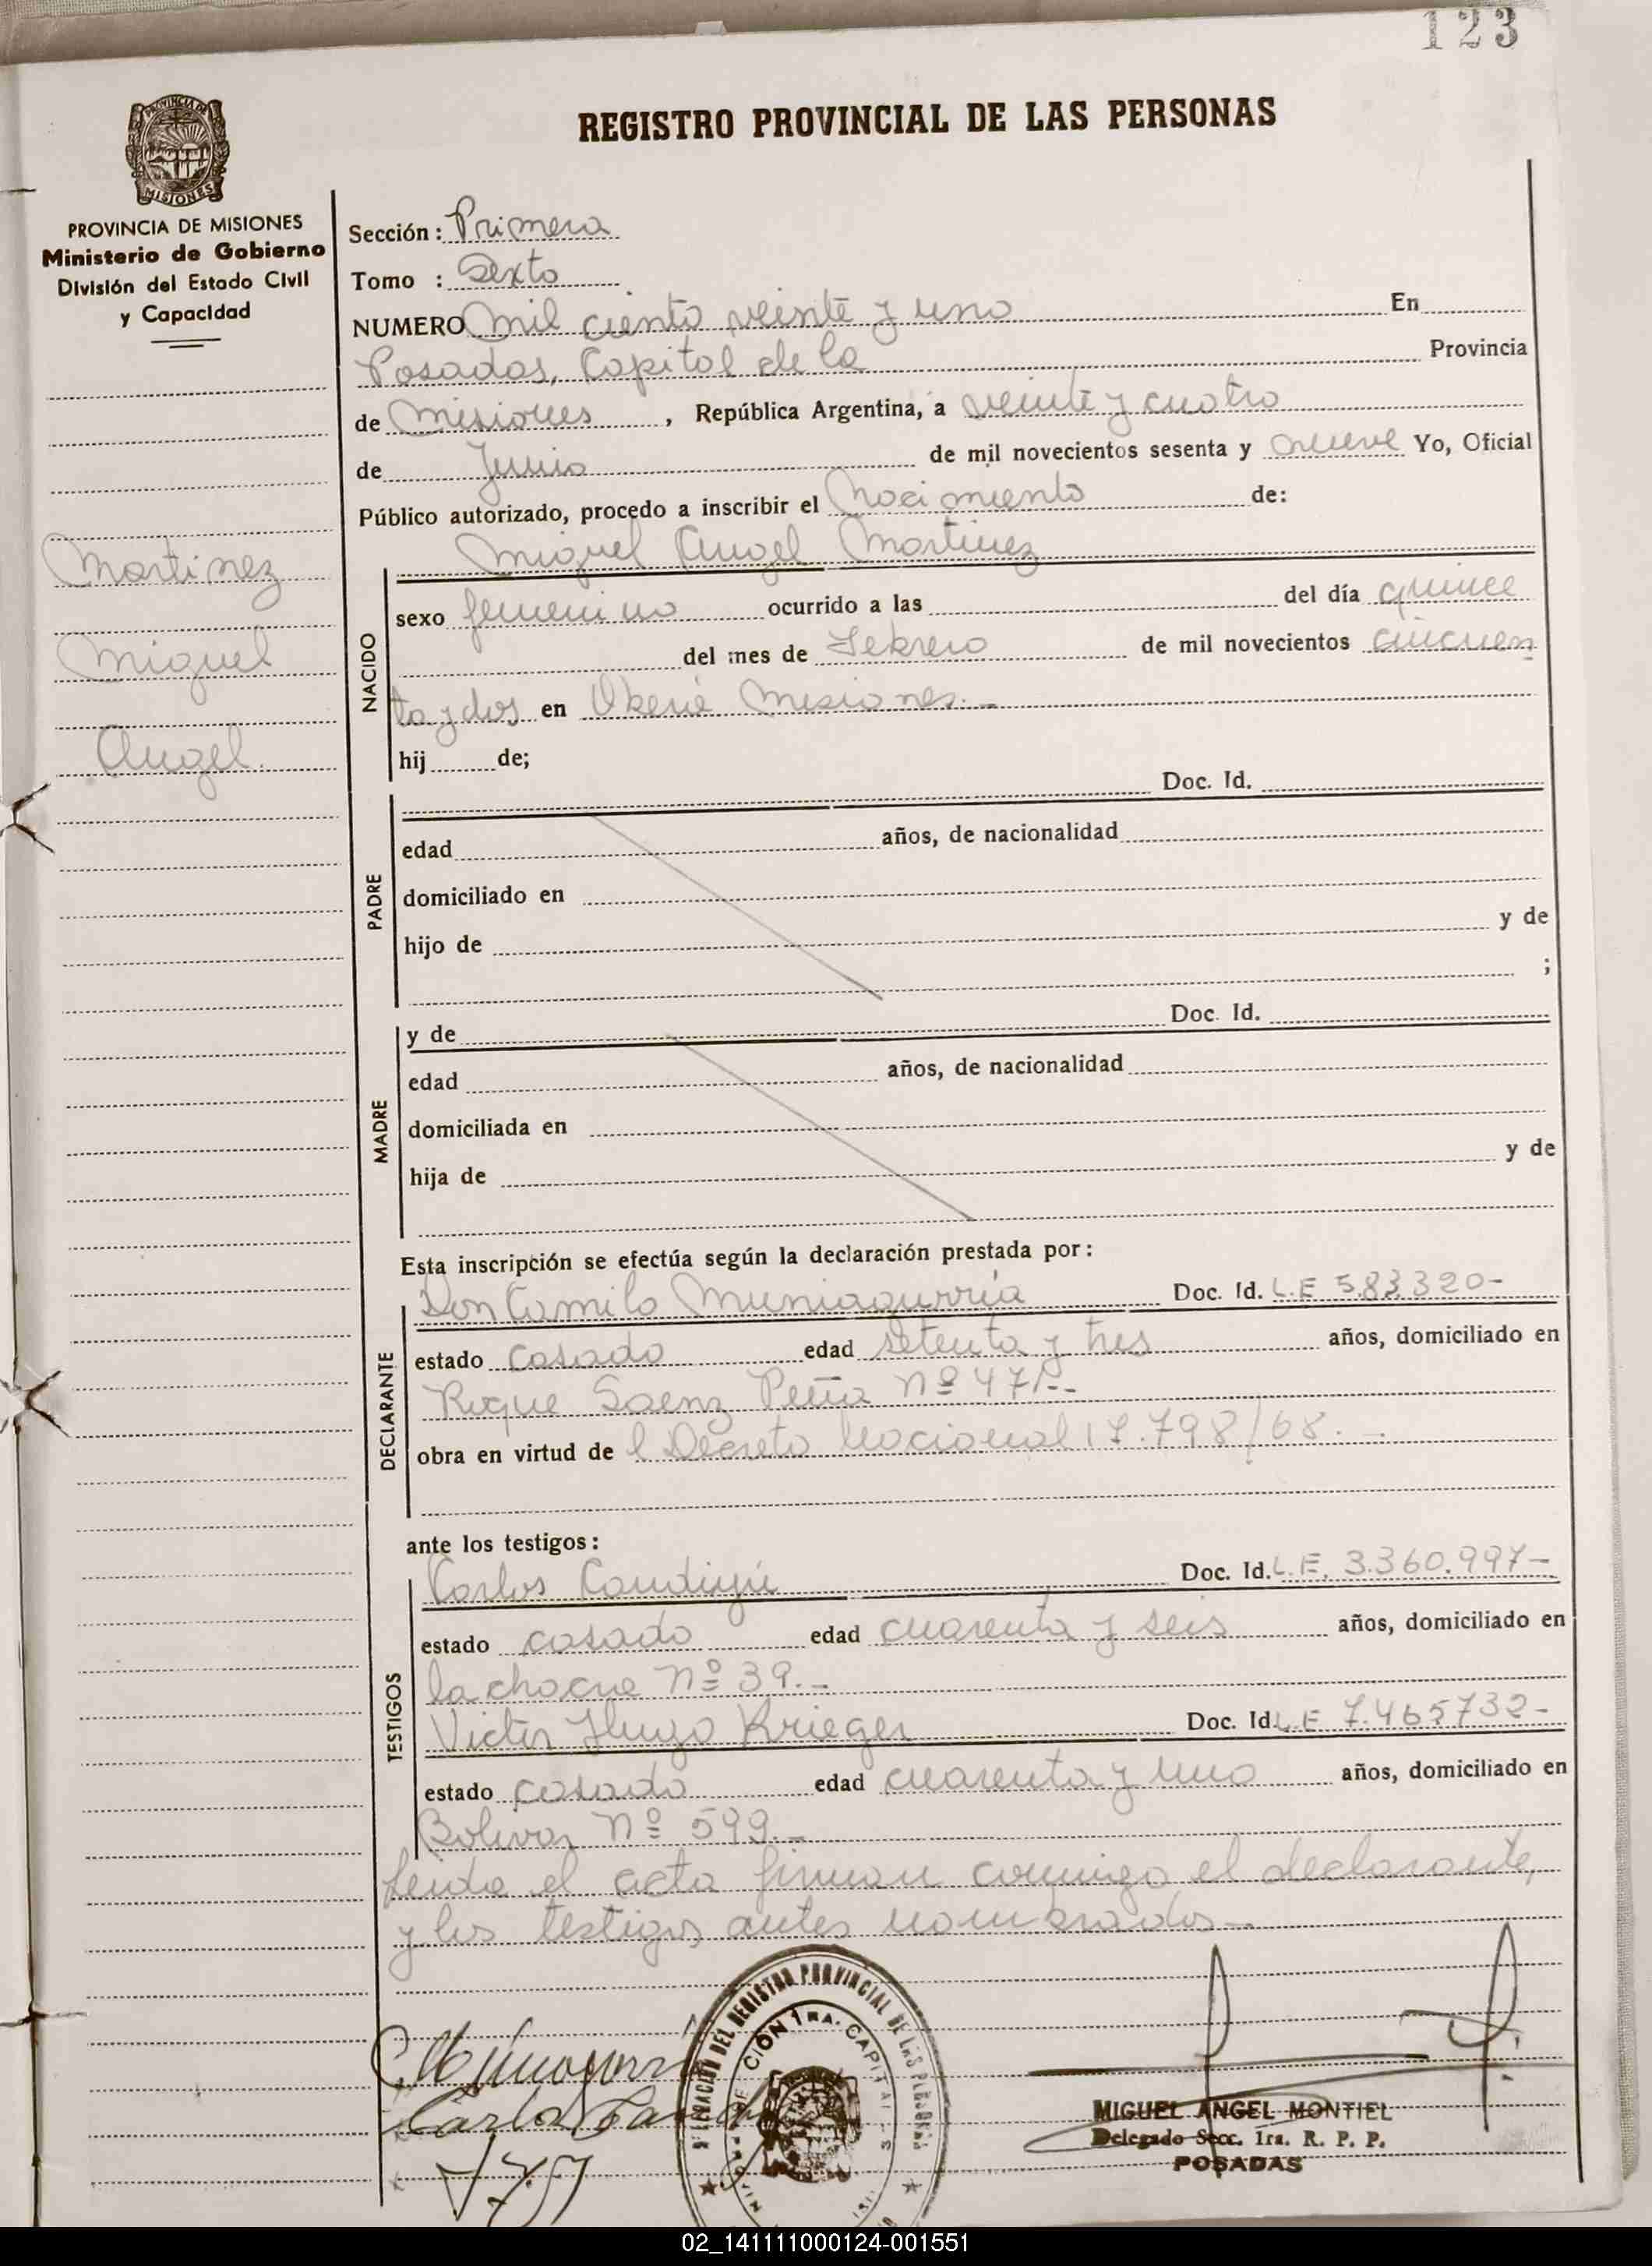 123
REGISTRO PROVINCIAL DE LAS PERSONAS
PROVINCIA DE MISIONES
MISIONES
PROVINCIA DE MISIONES
Ministerio de Gobierno
División del Estado Civil
y Capacidad
Martinez
Miguel
Angel.
Sección: Primera
Tomo : Sexto
NUMERO mil ciento veinte y uno En
Posadas, Capital de la Provincia
de Misiones, República Argentina, a veinte y cuatro
de Junio de mil novecientos sesenta y nueve Yo, Oficial
Público autorizado, procedo a inscribir el Nacimiento de:
Miguel Angel Martinez
NACIDO
sexo femenino ocurrido a las del día quince
del mes de Febrero de mil novecientos cincuen
ta y dos en Oberá Misiones.-
hij de;
PADRE
Doc. Id.
edad años, de nacionalidad
domiciliado en
hijo de y de
;
MADRE
y de Doc. Id.
edad años, de nacionalidad
domiciliada en
hija de y de
Esta inscripción se efectúa según la declaración prestada por:
DECLARANTE
Don Camilo Muniagurria Doc. Id. L.E 583320-
estado casado edad setenta y tres años, domiciliado en
Roque Saenz Peña Nº 471.-
obra en virtud de l Decreto Nacional 17.798/68.-
ante los testigos:
TESTIGOS
Carlos Doc. Id. L.E. 3.360.997-
estado casado edad cuarenta y seis años, domiciliado en
Lachocue Nº 39.-
Victor Hugo Krieger Doc. Id. L.E 7.465732-
estado casado edad cuarenta y uno años, domiciliado en
Bolivar Nº 599.-
Leida el acta firman conmigo el declarante,
y los testigos antes nombrados.-
DELEGACION DEL REGISTRO PROVINCIAL DE LAS PERSONAS
CION 1RA. CAPITAL
MIGUEL ANGEL MONTIEL
Delegado Secc. 1ra. R. P. P.
POSADAS
02_141111000124-001551